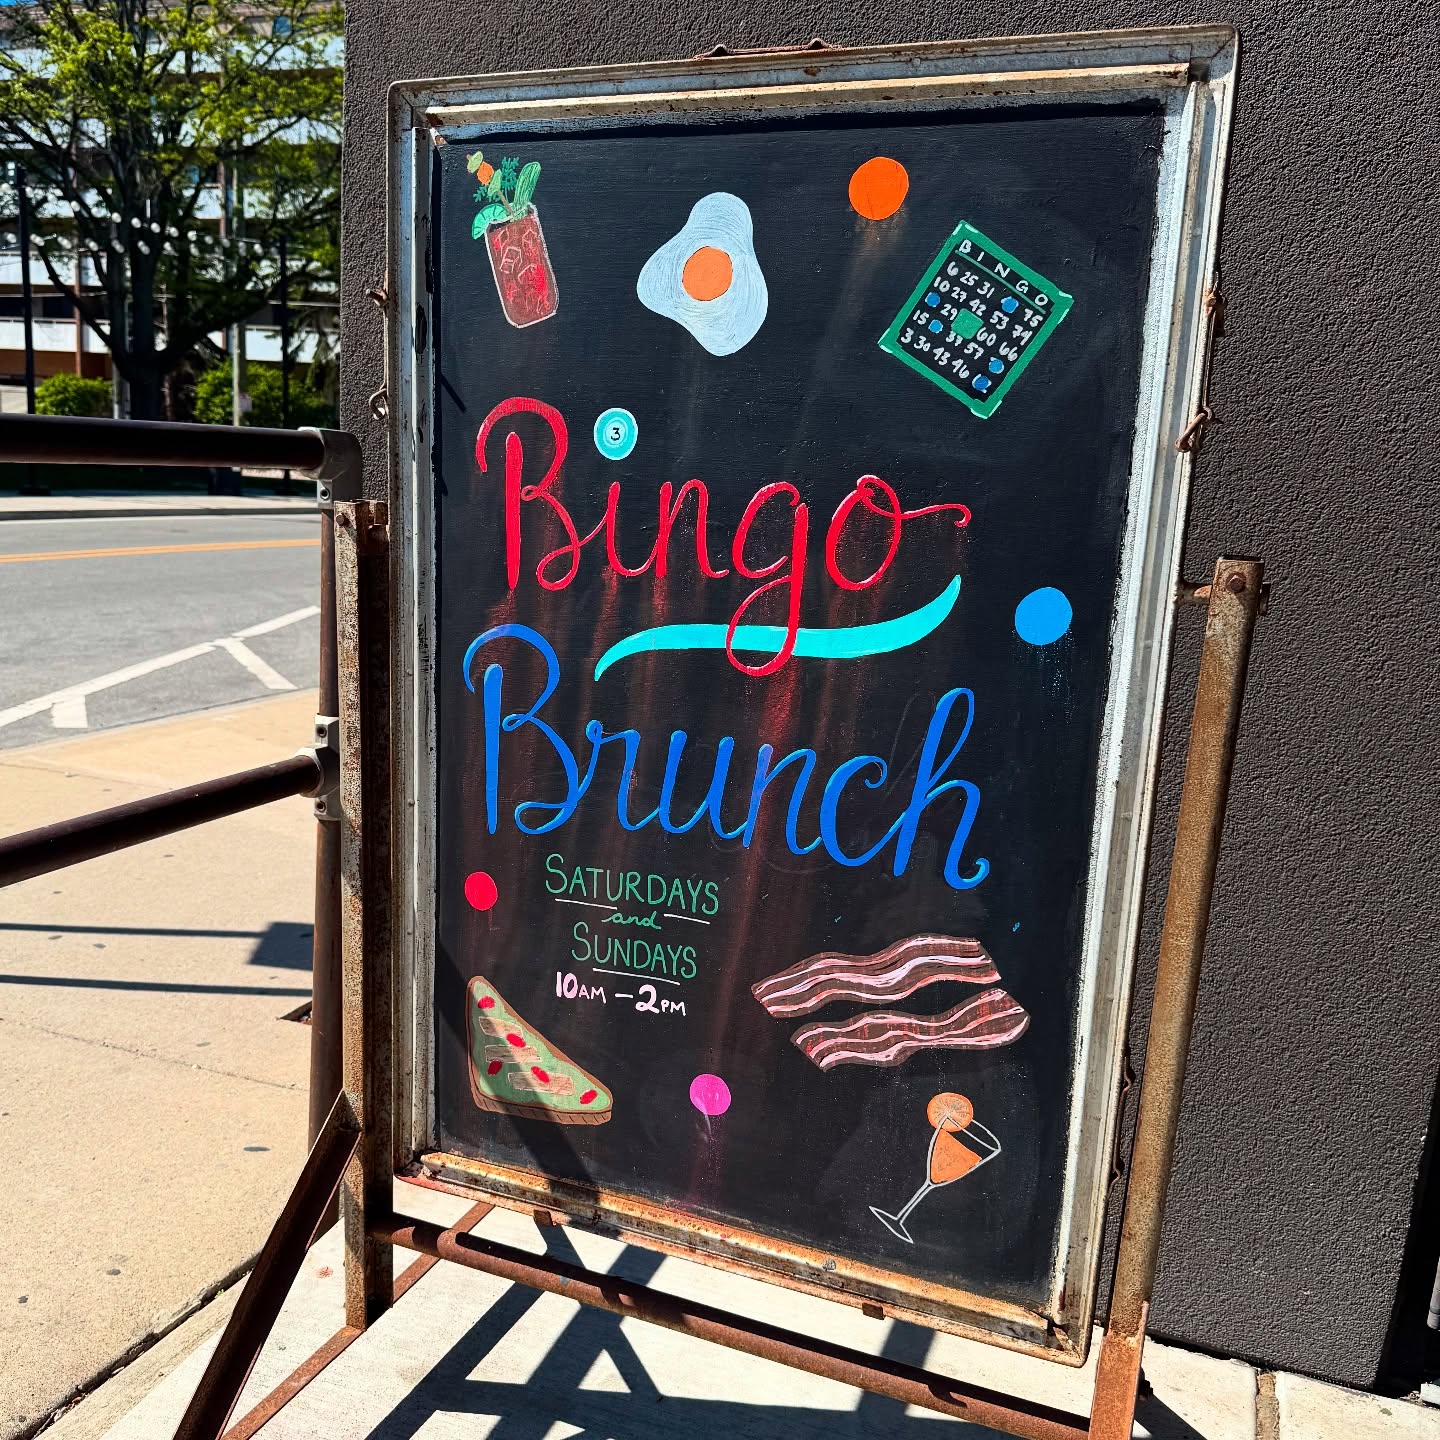 BINGO
6 25 31 75
10 27 42 53 74
29 60 66
15 37 57
3 30 43 46
3
Bingo
Brunch
SATURDAYS
and
SUNDAYS
10AM - 2PM